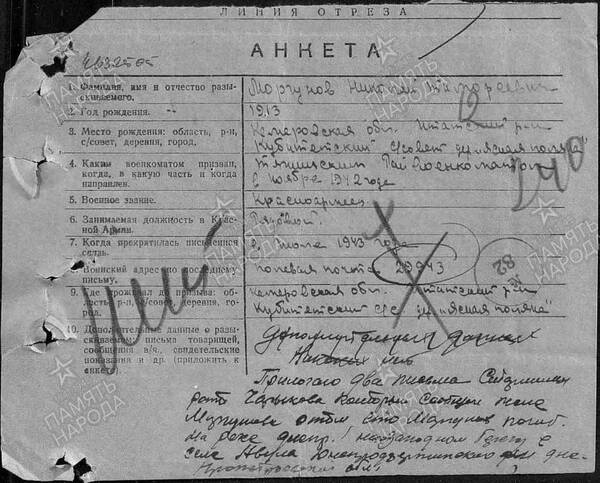 ЛИНИЯ ОТРЕЗА
АНКЕТА
1. Фамилия, имя и отчество разыскиваемого.
Моргунов Николай
2. Год рождения.
1913
3. Место рождения: область, р-н, с/совет, деревня, город.
Кемеровская обл. р-н
Кубитетский с/совет дер "ясная поляна"
4. Каким военкоматом призван, когда, в какую часть и когда направлен.
Райвоенкоматом
в ноябре 1942 года
5. Военное звание.
Красноармеец
6. Занимаемая должность в Красной Армии.
Рядовой.
7. Когда прекратилась письменная связь.
1943 года
8. Воинский адрес по последнему письму.
полевая почта 29943
9. Где проживал до призыва: область, р-н, с/совет, деревня, город.
кемеровская обл. р-н
Кубитетский с/с дер "ясная поляна"
10. Дополнительные данные о разыскиваемом: письма товарищей, сообщения в/ч., свидетельские показания и др. (приложить к анкете)
Дополнительных данных
никаких нет
Прилогаю два письма
Чарыкова который сообщил жене
Моргунова о том что Моргунов погиб.
На реке днепр! на западном берегу в
селе Аулы Днепродзержинского р-н дне-
пропетровской обл.
240
82
ПАМЯТЬ НАРОДА